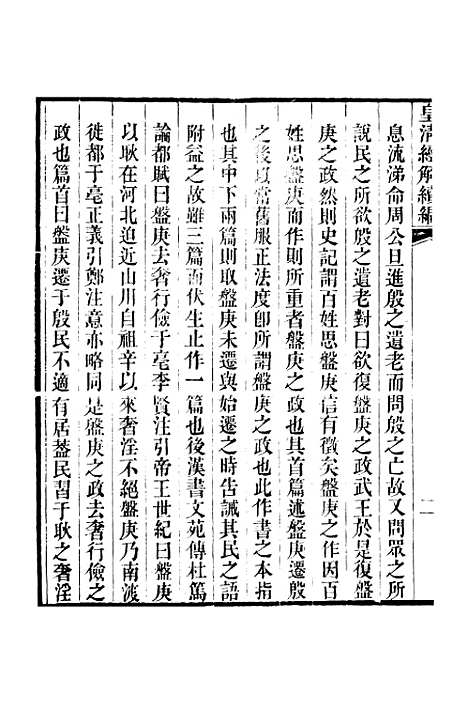 皇清經解續編
二
息流涕命周公旦進殷之遺老而問殷之亡故又問眾之所
說民之所欲殷之遺老對曰欲復盤庚之政武王於是復盤
庚之政然則史記謂百姓思盤庚信有徵矣盤庚之作因百
姓思盤庚而作則所重者盤庚之政也其首篇述盤庚遷殷
之後以常舊服正法度卽所謂盤庚之政也此作書之本指
也其中下兩篇則取盤庚未遷與始遷之時告誡其民之語
附益之故雖三篇而伏生止作一篇也後漢書文苑傳杜篤
論都賦曰盤庚去奢行儉于亳李賢注引帝王世紀曰盤庚
以耿在河北迫近山川自祖辛以來奢淫不絕盤庚乃南渡
徙都于亳正義引鄭注意亦略同是盤庚之政去奢行儉之
政也篇首曰盤庚遷于殷民不適有居葢民習于耿之奢淫